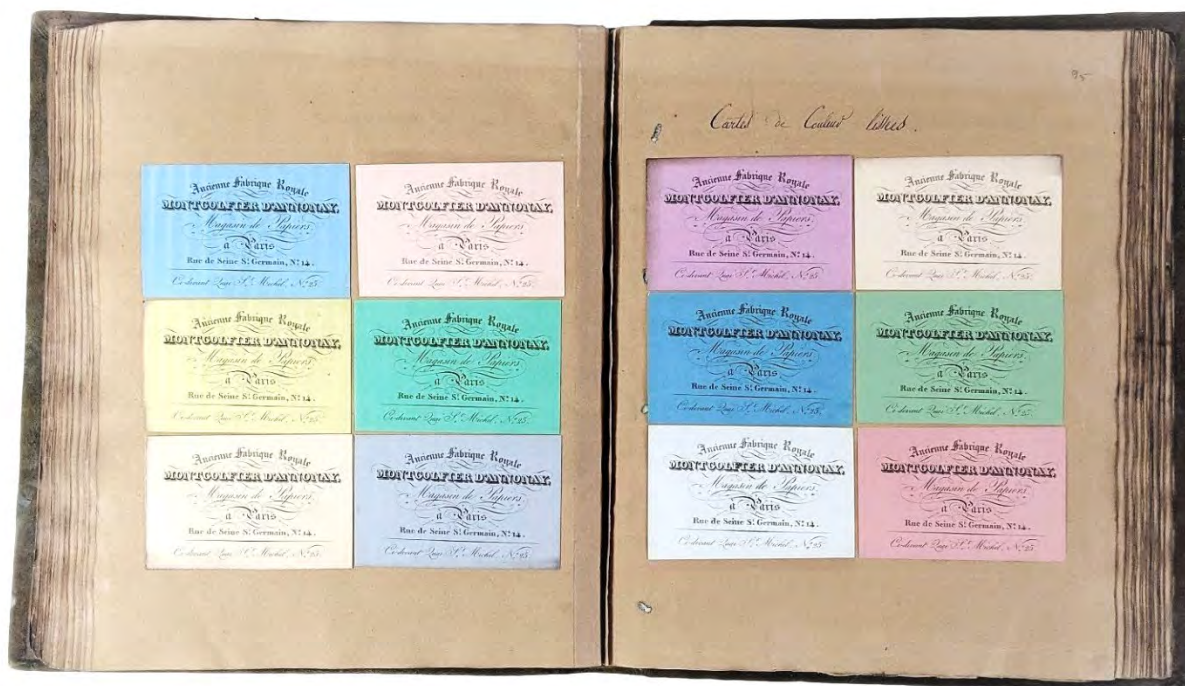 Ancienne Fabrique Royale
MONTGOLFIER D'ANNONAY,
Magasin de Papiers,
à Paris
Rue de Seine St. Germain, No. 14.
Ci-devant Quai St. Michel, No. 25.
Ancienne Fabrique Royale
MONTGOLFIER D'ANNONAY,
Magasin de Papiers,
à Paris
Rue de Seine St. Germain, No. 14.
Ci-devant Quai St. Michel, No. 25.
Ancienne Fabrique Royale
MONTGOLFIER D'ANNONAY,
Magasin de Papiers,
à Paris
Rue de Seine St. Germain, No. 14.
Ci-devant Quai St. Michel, No. 25.
Ancienne Fabrique Royale
MONTGOLFIER D'ANNONAY,
Magasin de Papiers,
à Paris
Rue de Seine St. Germain, No. 14.
Ci-devant Quai St. Michel, No. 25.
Ancienne Fabrique Royale
MONTGOLFIER D'ANNONAY,
Magasin de Papiers,
à Paris
Rue de Seine St. Germain, No. 14.
Ci-devant Quai St. Michel, No. 25.
Ancienne Fabrique Royale
MONTGOLFIER D'ANNONAY,
Magasin de Papiers,
à Paris
Rue de Seine St. Germain, No. 14.
Ci-devant Quai St. Michel, No. 25.
Cartes de Couleur lissées.
Ancienne Fabrique Royale
MONTGOLFIER D'ANNONAY,
Magasin de Papiers,
à Paris
Rue de Seine St. Germain, No. 14.
Ci-devant Quai St. Michel, No. 25.
Ancienne Fabrique Royale
MONTGOLFIER D'ANNONAY,
Magasin de Papiers,
à Paris
Rue de Seine St. Germain, No. 14.
Ci-devant Quai St. Michel, No. 25.
Ancienne Fabrique Royale
MONTGOLFIER D'ANNONAY,
Magasin de Papiers,
à Paris
Rue de Seine St. Germain, No. 14.
Ci-devant Quai St. Michel, No. 25.
Ancienne Fabrique Royale
MONTGOLFIER D'ANNONAY,
Magasin de Papiers,
à Paris
Rue de Seine St. Germain, No. 14.
Ci-devant Quai St. Michel, No. 25.
Ancienne Fabrique Royale
MONTGOLFIER D'ANNONAY,
Magasin de Papiers,
à Paris
Rue de Seine St. Germain, No. 14.
Ci-devant Quai St. Michel, No. 25.
Ancienne Fabrique Royale
MONTGOLFIER D'ANNONAY,
Magasin de Papiers,
à Paris
Rue de Seine St. Germain, No. 14.
Ci-devant Quai St. Michel, No. 25.